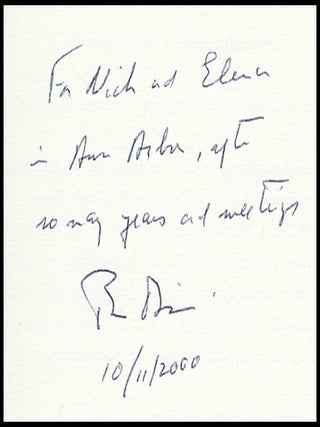 For Nick and Elena
in Ann Arbor, after
so many years and meetings
10/11/2000